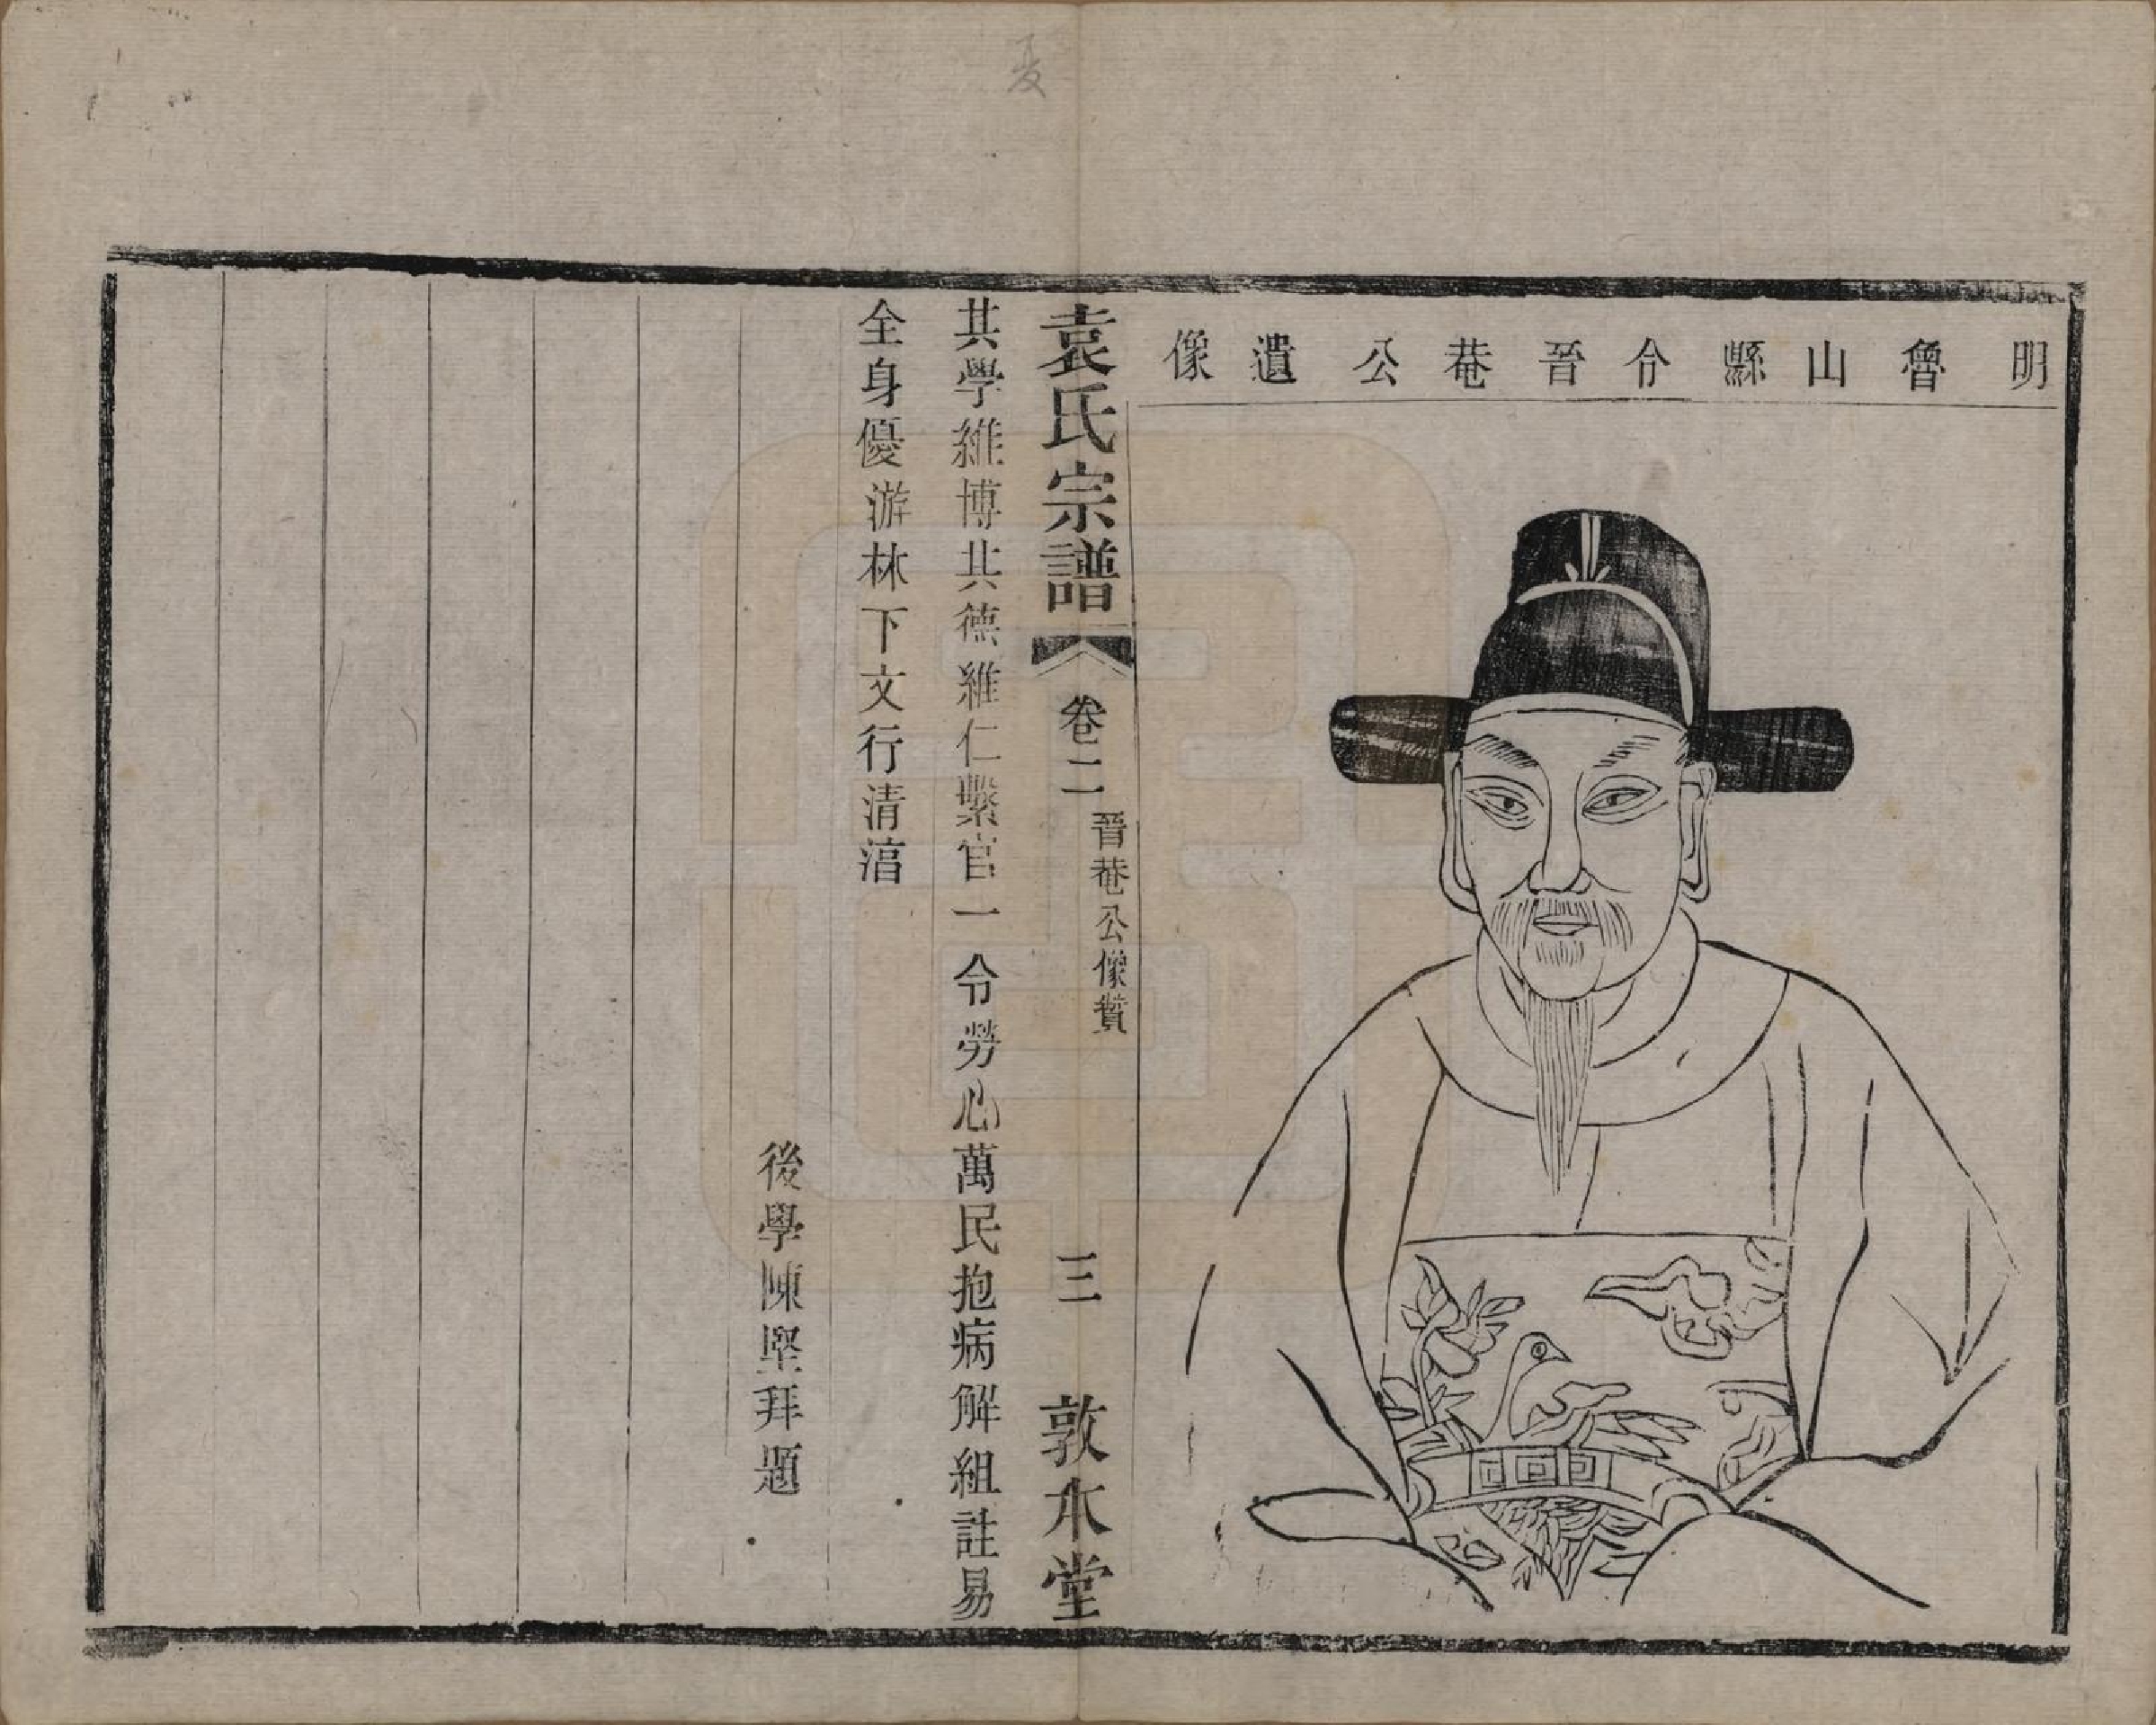 夏
明魯山縣令晉菴公遺像
袁氏宗譜
卷二
晉菴公像贊
三
敦本堂
其學維博其德維仁繫官一令勞心萬民抱病解組註易
全身優游林下文行清湻
後學陳堅拜題